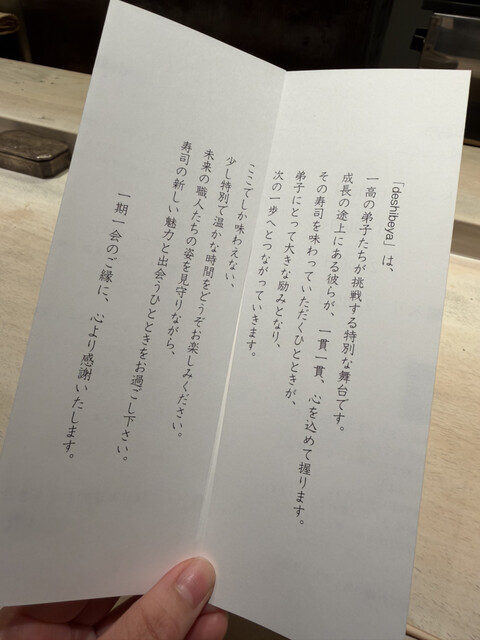 「deshibeya」は、
一高の弟子たちが挑戦する特別な舞台です。
成長の途上にある彼らが、一貫一貫、心を込めて握ります。
その寿司を味わっていただくひとときが、
弟子にとって大きな励みとなり、
次の一歩へとつながっていきます。
ここでしか味わえない、
少し特別で温かな時間をどうぞお楽しみください。
未来の職人たちの姿を見守りながら、
寿司の新しい魅力と出会うひとときをお過ごし下さい。
一期一会のご縁に、心より感謝いたします。